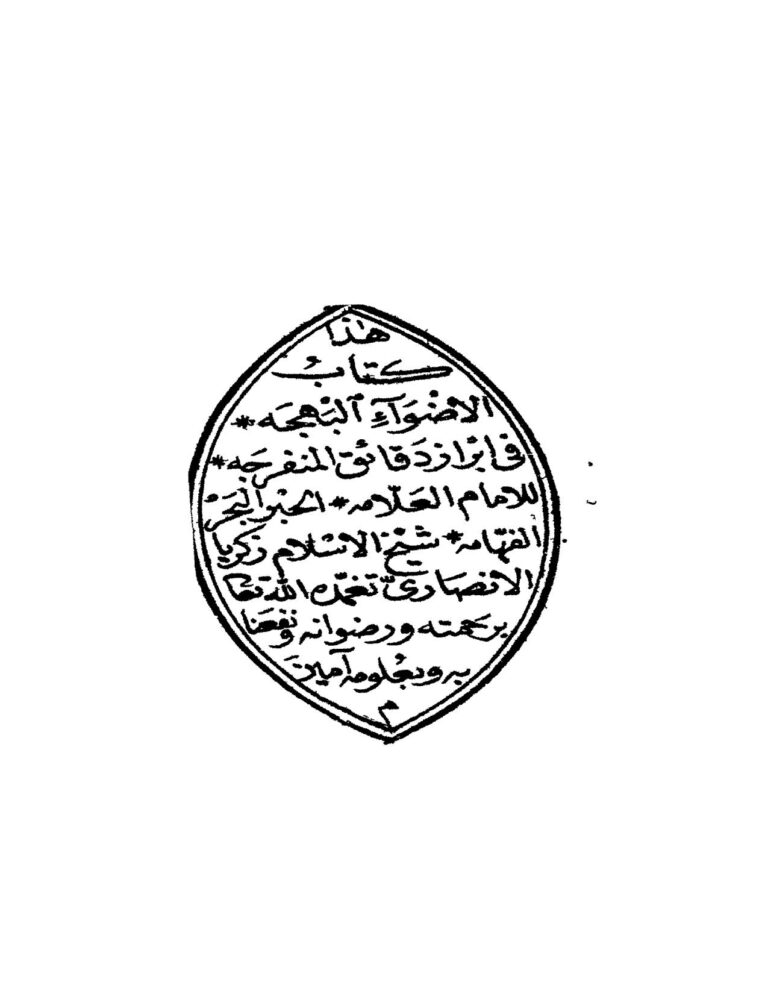 هٰذا
كتابُ
الاضْوَآءِ ٱلبَهجَه *
فى ابْرَازِ دَقائق المنفرجَه *
للامام العَلّامه * الحَبْر البَحْر
الفهّامه * شيْخ الاسْلام زكريا
الانصَارىّ تغمّده الله تعا
برحمته ورضوانه ونفعَنا
به وبعُلومه آمينَ
م